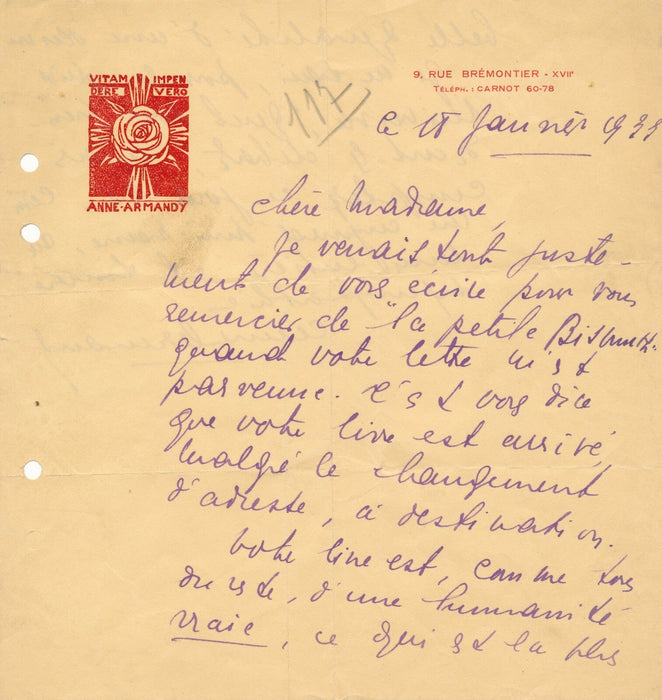 VITAM IMPEN
DERE VERO
ANNE·ARMANDY
9, RUE BRÉMONTIER · XVIIᵉ
TÉLÉPH. : CARNOT 60-78
117
le 18 Janvier 193
chère Madame,
Je venais tout juste-
ment de vous écrire pour vous
remercier de "la petite
quand votre lettre m'est
parvenue. C'est vous dire
que votre livre est arrivé,
malgré le changement
d'adresse, à destination.
Votre livre est, comme tous
du reste, d'une humanité
vraie, ce qui est la plus